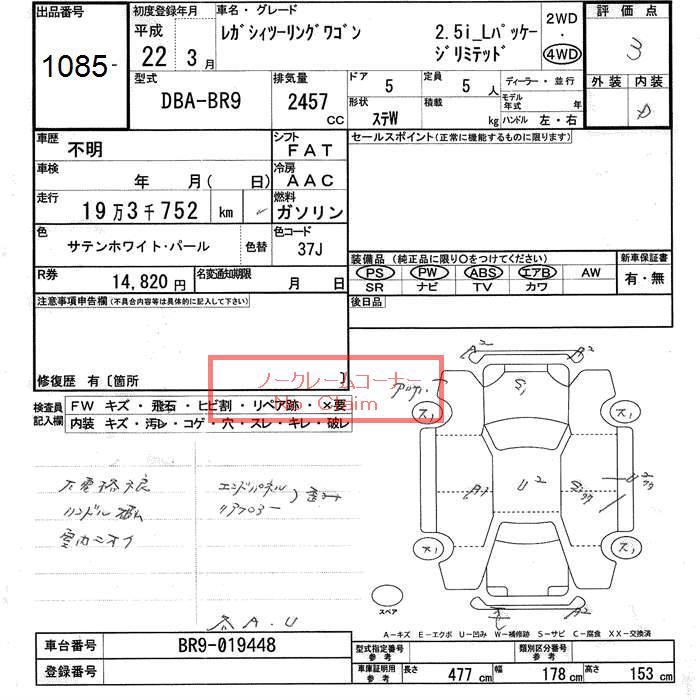 出品番号
1085-
初度登録年月
平成
22 3月
車名・グレード
レガシィツーリングワゴン 2.5i_Lパッケー
ジリミテッド
2WD
・
4WD
評価点
3
外装 内装
D
型式
DBA-BR9
排気量
2457
CC
ドア
5
定員
5 人
ディーラー・並行
形状
ステW
積載
kg
モデル
年式 年
ハンドル 左・右
車歴
不明
シフト
FAT
セールスポイント(正常に機能するものに限ります)
車検
年 月( 日)
冷房
AAC
走行
19万3千752 km
燃料
ガソリン
色
サテンホワイト・パール
色替
色コード
37J
装備品 (純正品に限り○をつけてください)
PS PW ABS エアB AW
SR ナビ TV カワ
新車保証書
有・無
R券
14,820円
名変通知期限
月 日
後日品
注意事項申告欄(不具合内容等は具体的に記入して下さい)
修復歴 有〔箇所 〕
ノークレームコーナー
No Claim
検査員
記入欄
FW キズ・飛石・ヒビ割・リペア跡・×要
内装 キズ・汚レ・コゲ・穴・スレ・キレ・破レ
ハンドル
室内ニオイ
エンドパネル
リアフロアー
A.U
A2
A2
S1
ス1
ス1
U2
ス1
ス1
A2
スペア
A-キズ E-エクボ U-凹み W-補修跡 S-サビ C-腐食 XX-交換済
車台番号
BR9-019448
登録番号
型式指定番号
参考
類別区分番号
参考
車庫証明用
参考
長さ 477 cm
幅 178 cm
高さ 153 cm